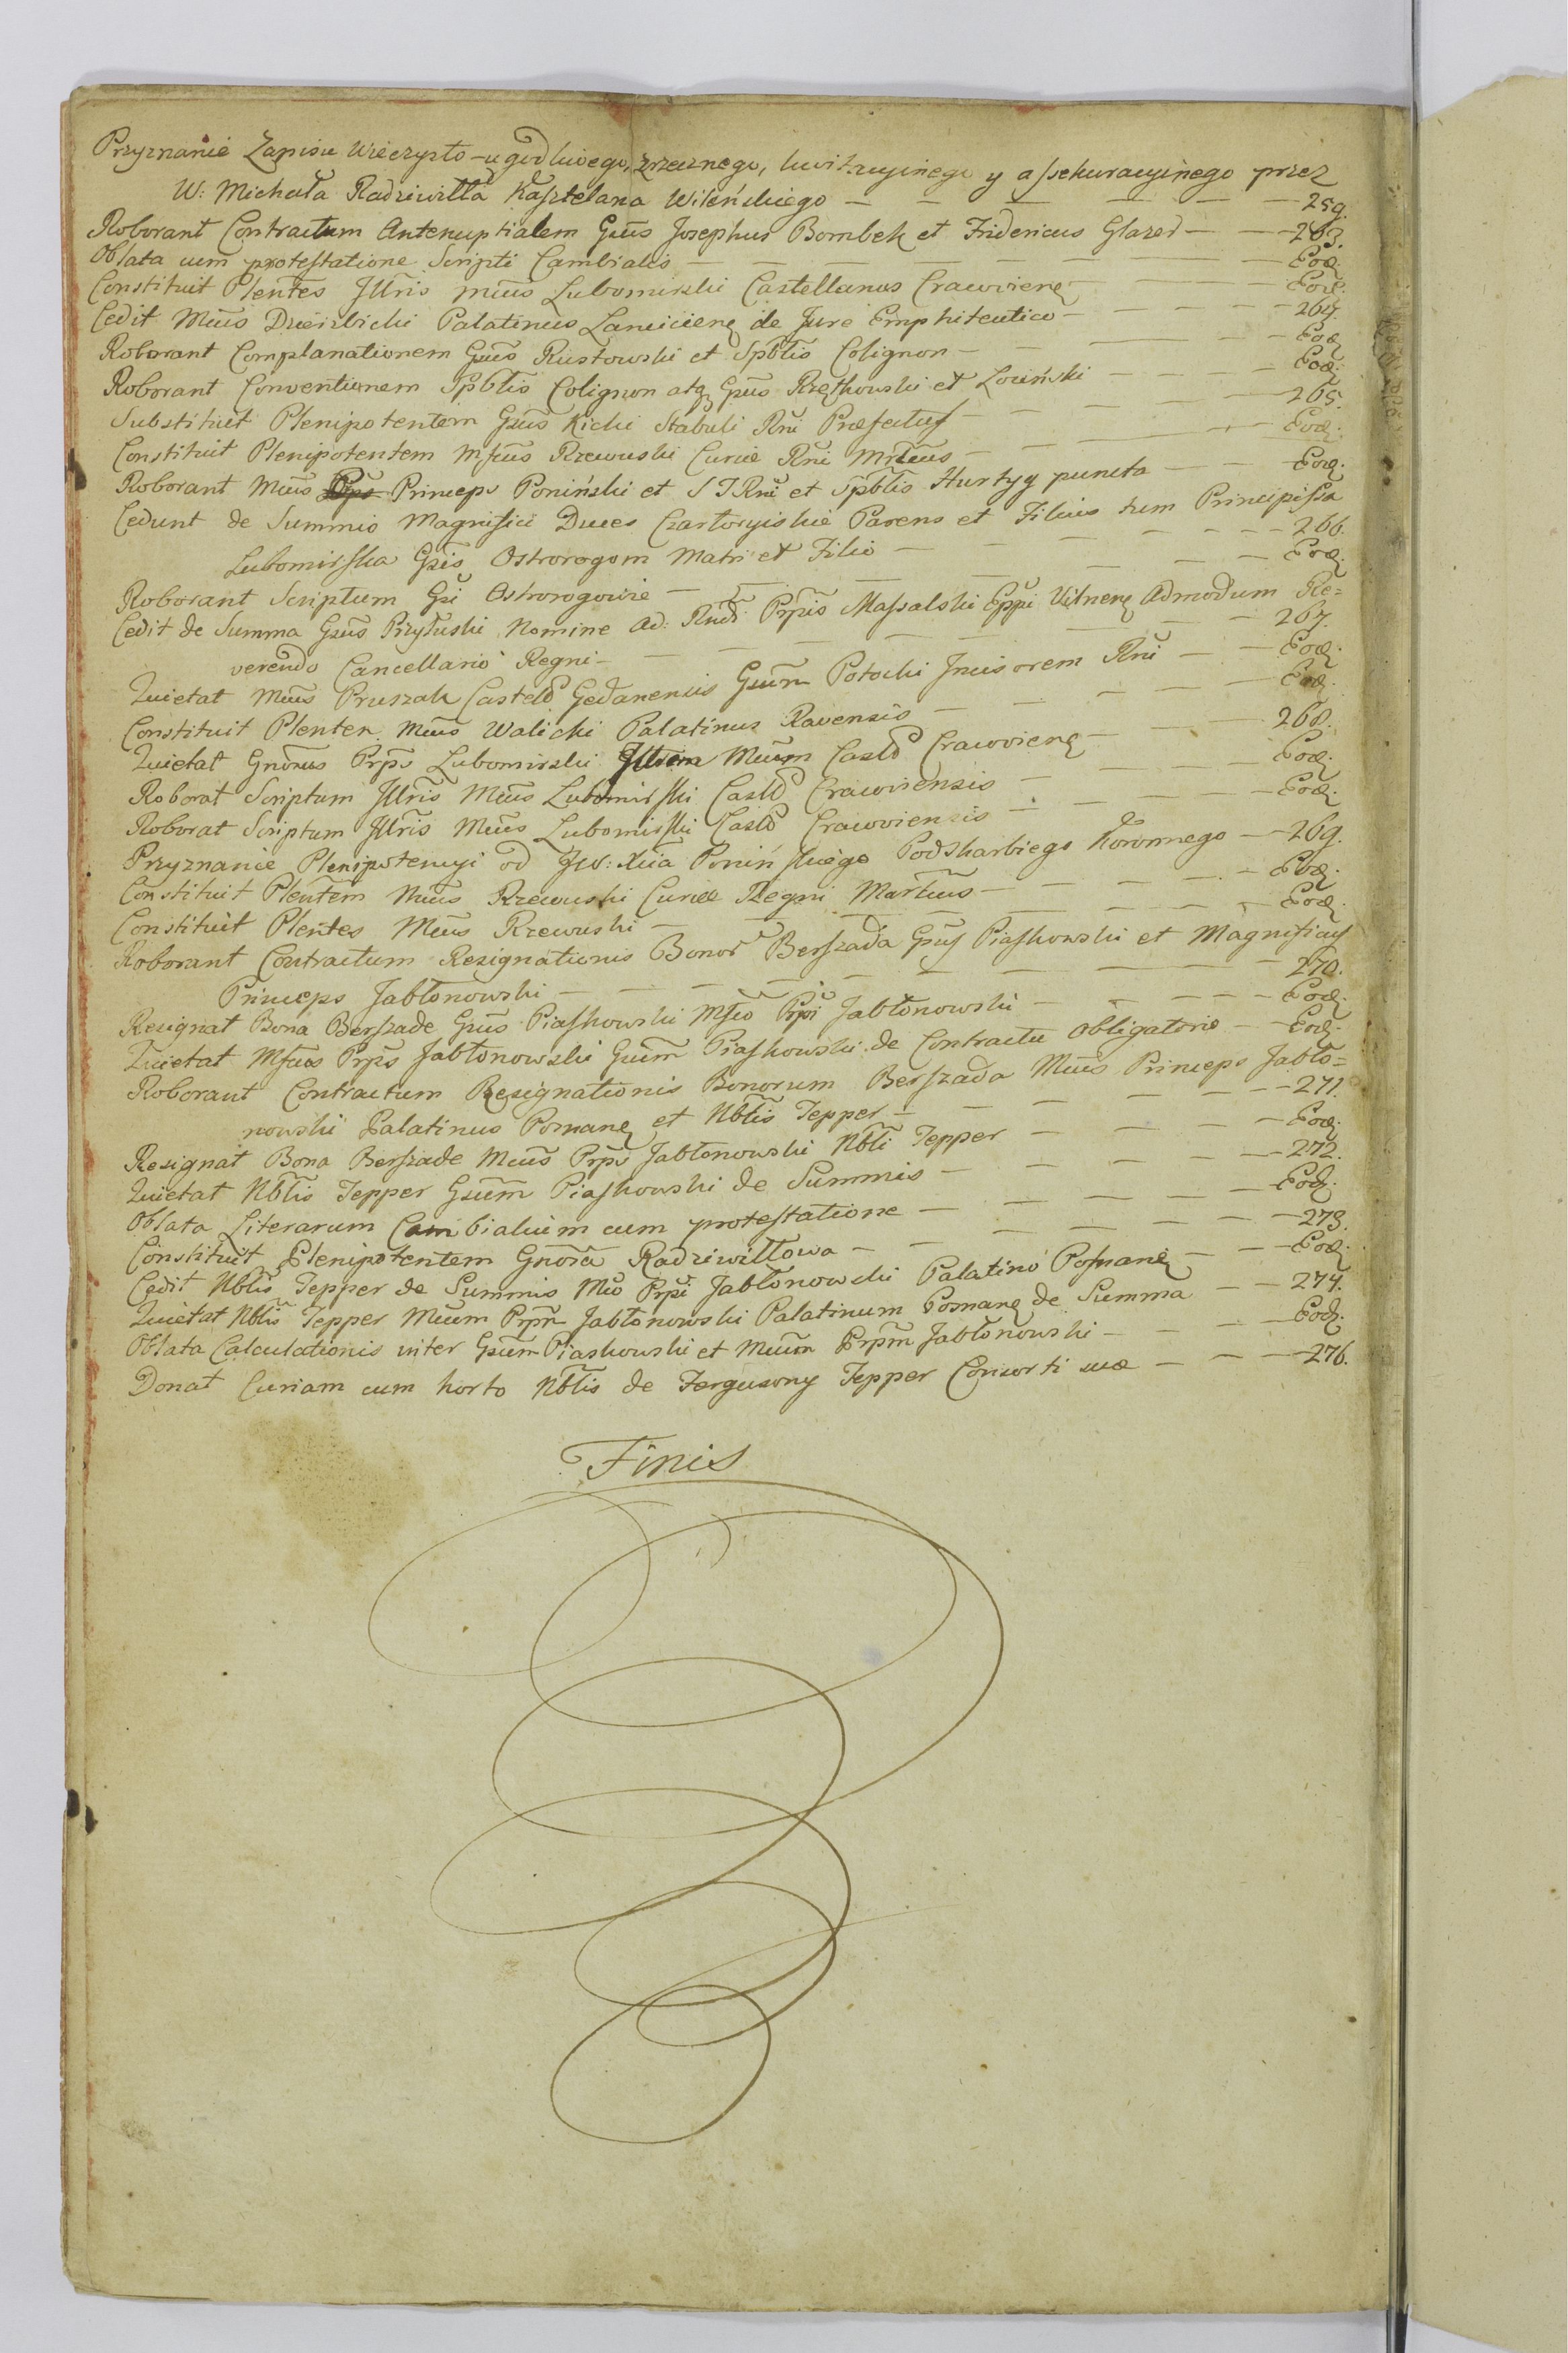 Przyznanie Zapisu Wieczysto-ugodliwego, zrzecznego, kwitacyinego y assekuracyinego przez
W: Michała Radziwiłła Kasztelana Wileńskiego — — — — — 259.
Roborant Contractum Antenuptialem Gsus Josephus Bombek et Fridericus Glazer — — 263.
Oblata cum protestatione Scripti Cambialis — — — — — Eod.
Constituit Plentes Jllris Mcus Lubomirski Castellanus Cracovieng — — — Eod.
Cedit Mcus Dzierzbicki Palatinus Lancicieng de Jure Emphiteutico — — — 264.
Roborant Complanationem Gsus Rustowski et Spbtis Colignon — — — Eod.
Roborant Conventionem Spbtis Colignon atq Gsus Rzętkowski et Loziński — — — Eod.
Substituit Plenipotentem Gsus Kicki Stabuli Rni Præfectus — — — 265.
Constituit Plenipotentem Mfcus Rzewuski Curiæ Rni Mrlcus — — — Eod.
Roborant Mcus Princeps Poniński et S T Rni et Spbtis Hurtyg puncta — — Eod.
Cedunt de Summis Magnifici Duces Czartoryiskie Parens et Filius tum Principissa
Lubomirska Gsis Ostrorogom Matri et Filio — — — — — 266.
Roborant Scriptum Gsi Ostrorogowie — — — — — Eod.
Cedit de Summa Gsus Przyłuski Nomine Ad: Rndi Prpis Massalski Eppi Vilneng Admodum Re=
verendo Cancellario Regni — — — — — 267.
Quietat Mcus Pruszak Casteld Gedanensis Gsum Potocki Incisorem Rni — — Eod.
Constituit Plenten Mcus Walicki Palatinus Ravensis — — — — Eod.
Quietat Gnorus Prps Lubomirski Jllrem Mcum Castld Cracovieng — — — 268.
Roborat Scriptum Jllris Mcus Lubomirski Castld Cracoviensis — — — Eod.
Roborat Scriptum Jllris Mcus Lubomirski Castld Cracoviensis — — — Eod.
Przyznanie Plenipotencyi od JW: Xcia Ponińskiego Podskarbiego Koronnego — 269.
Constituit Plentem Mcus Rzewuski Curiæ Regni Marlcus — — — Eod.
Constituit Plentes Mcus Rzewuski — — — — — Eod.
Roborant Contractum Resignationis Bonor Berszada Gsus Piaskowski et Magnificus
Princeps Jabłonowski — — — — — 270.
Resignat Bona Berszade Gsus Piaskowski Mfco Prpi Jabłonowski — — — Eod.
Quietat Mfcus Prps Jabłonowski Gsum Piaskowski de Contractu obligatorio — — Eod.
Roborant Contractum Resignationis Bonorum Berszada Mcus Princeps Jabło=
nowski Palatinus Posnang et Nbtis Tepper — — — — 271.
Resignat Bona Berszade Mcus Prps Jabłonowski Nbti Tepper — — — Eod.
Quietat Nbtis Tepper Gsum Piaskowski de Summis — — — — 272.
Oblata Literarum Cambialium cum protestatione — — — — Eod.
Constituit Plenipotentem Gnora Radziwiłłowa — — — — 273.
Cedit Nbtis Tepper de Summis Mco Prpi Jabłonowski Palatino Posnang — — Eod.
Quietat Nbtis Tepper Mcum Prpm Jabłonowski Palatinum Posnang de Summa — — 274.
Oblata Calculationis inter Gsum Piaskowski et Mcum Prpm Jabłonowski — — Eod.
Donat Curiam cum horto Nbtis de Fergusony Tepper Consorti suæ — — 276.
Finis